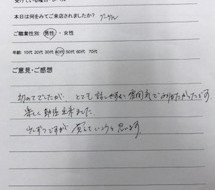 本日は何をみてご来店されましたか? グーグル
ご職業性別 男性 ・ 女性
年齢 10代 20代 30代 40代 50代 60代 70代
ご意見・ご感想
初めてでしたが、とても話しやすい雰囲気でありがたかったです
楽しく勉強出来ました
少しずつですが 覚えていこうと思います